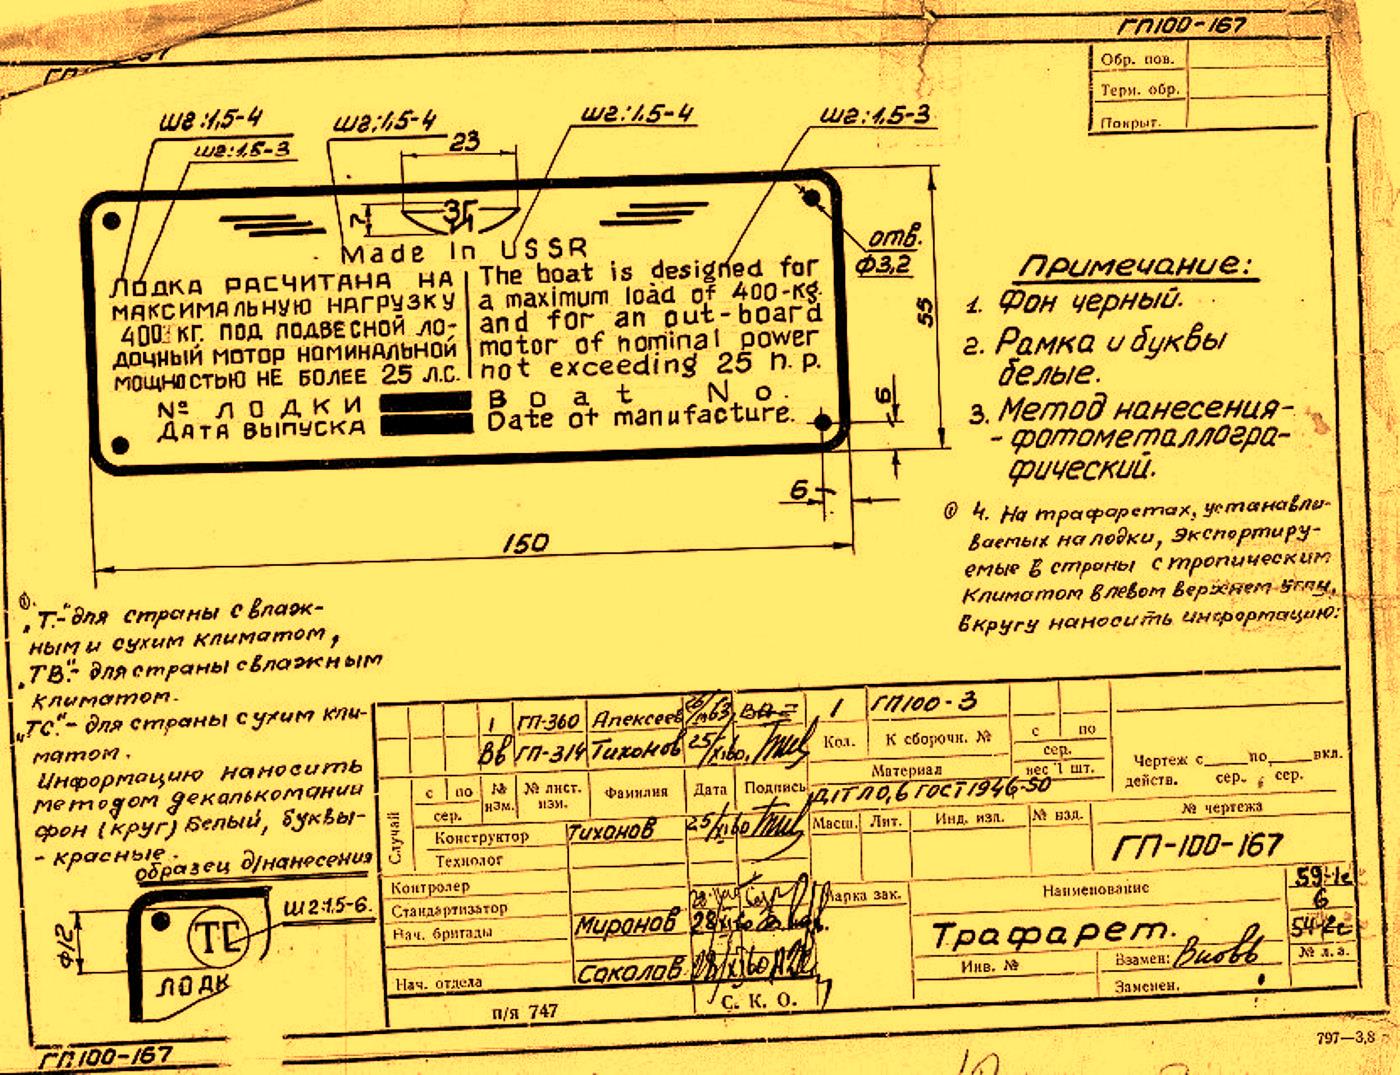 ГП100-167
Обр. пов.
Терм. обр.
Покрыт.
шг:1,5-4
шг:1,5-3
шг:1,5-4
шг:1,5-4
шг:1,5-3
23
7
ЗГ
Made In USSR
ЛОДКА РАСЧИТАНА НА
МАКСИМАЛЬНУЮ НАГРУЗКУ
400 КГ. ПОД ПОДВЕСНОЙ ЛО-
ДОЧНЫЙ МОТОР НОМИНАЛЬНОЙ
МОЩНОСТЬЮ НЕ БОЛЕЕ 25 Л.С.
The boat is designed for
a maximum load of 400-kg.
and for an out-board
motor of nominal power
not exceeding 25 h.p.
№ ЛОДКИ
ДАТА ВЫПУСКА
Boat No.
Date of manufacture.
отв.
ф3,2
55
6
6
150
Примечание:
1. Фон черный.
2. Рамка и буквы
белые.
3. Метод нанесения-
- фотометаллогра-
фический.
① 4. На трафаретах, устанавли-
ваемых на лодки, Экспортиру-
емые в страны с тропическим
Климатом в левом верхнем углу,
в кругу наносить информацию:
①
„Т."- для страны с влаж-
ным и сухим климатом,
„ТВ."- для страны с влажным
климатом.
„ТС."- для страны с сухим кли-
матом.
Информацию наносить
методом декалькомании
фон (круг) Белый, буквы-
- красные.
образец д/нанесения
Ш2:1.5-6.
ф12
ТС
ЛОДК
1 ГП-360 Алексеев
Вв ГП-314 Тихонов 25/XI60.
1 ГП100-3
Кол. К сборочн. № с по сер.
Материал вес 1 шт.
Чертеж с____по____вкл.
действ. сер. сер.
Случай с по сер. № изм. № лист. изм. Фамилия Дата Подпись
Д1ТЛ0,6 ГОСТ1946-50
Конструктор Тихонов 25/XI60
Технолог
Масш. Лит. Инд. изл. № изд.
№ чертежа
ГП-100-167
Контролер
Стандартизатор
Нач. бригады Миронов
Соколав
Нач. отдела
Марка зак.
Наименование
Трафарет.
59-1с
6
54-2с
№ л.а.
Инв. №
Взамен: Вновь
Заменен.
п/я 747
С. К. О.
ГП100-167
797—3,8